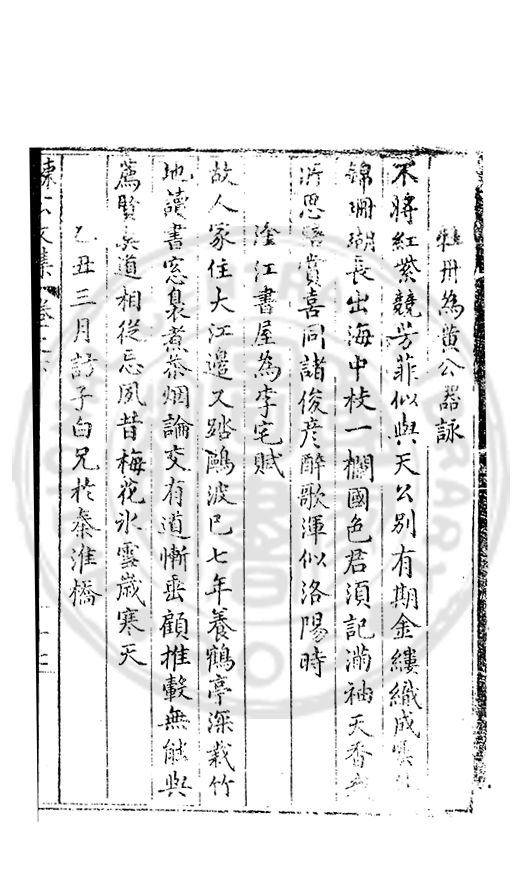 牡丹為黃公器詠
不將紅紫競芳菲似與天公別有期金縷織成雲
錦珊瑚長出海中枝一欄國色君須記滿袖天香
所思醫賞喜同諸俊彥醉歌渾似洛陽時
淦江書屋為李宅賦
故人家住大江邊又踏鷗波已七年養鶴亭深栽竹
地讀書窓裊煮茶烟論交有道慚垂顧推轂無能與
薦賢道相從忘夙昔梅花氷雪歲寒天
乙丑三月訪子白兄於秦淮橋
文集